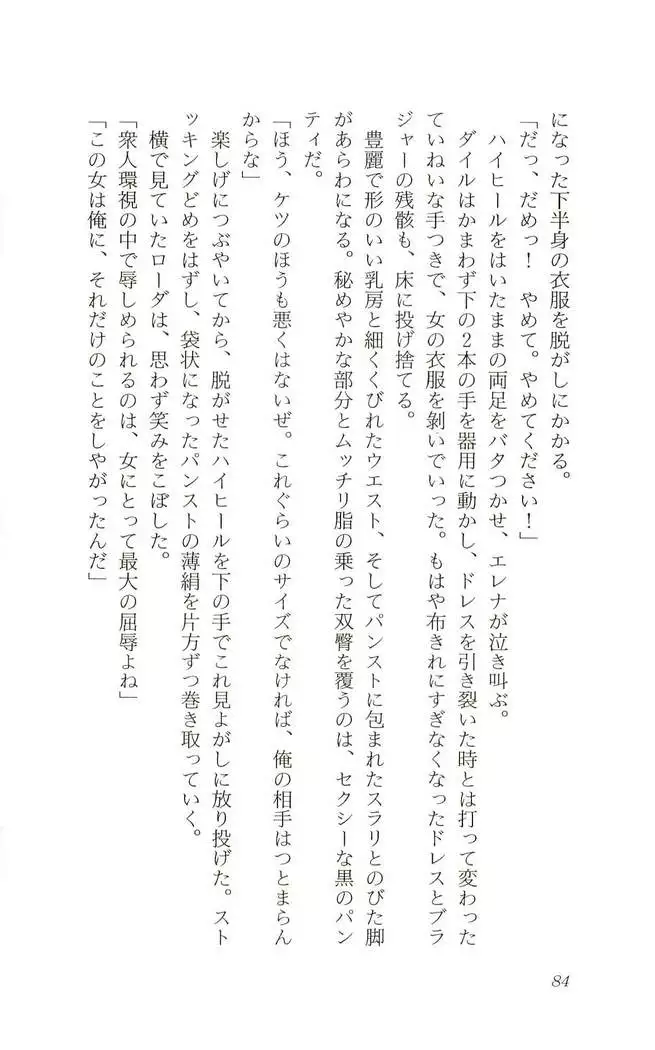 になった下半身の衣服を脱がしにかかる。
「だっ、だめっ！　やめて。やめてください！」
　ハイヒールをはいたままの両足をバタつかせ、エレナが泣き叫ぶ。
　ダイルはかまわず下の２本の手を器用に動かし、ドレスを引き裂いた時とは打って変わった
ていねいな手つきで、女の衣服を剝いでいった。もはや布きれにすぎなくなったドレスとブラ
ジャーの残骸も、床に投げ捨てる。
　豊麗で形のいい乳房と細くくびれたウエスト、そしてパンストに包まれたスラリとのびた脚
があらわになる。秘めやかな部分とムッチリ脂の乗った双臀を覆うのは、セクシーな黒のパン
ティだ。
「ほう、ケツのほうも悪くはないぜ。これぐらいのサイズでなければ、俺の相手はつとまらん
からな」
　楽しげにつぶやいてから、脱がせたハイヒールを下の手でこれ見よがしに放り投げた。スト
ッキングどめをはずし、袋状になったパンストの薄絹を片方ずつ巻き取っていく。
　横で見ていたローダは、思わず笑みをこぼした。
「衆人環視の中で辱しめられるのは、女にとって最大の屈辱よね」
「この女は俺に、それだけのことをしやがったんだ」
84